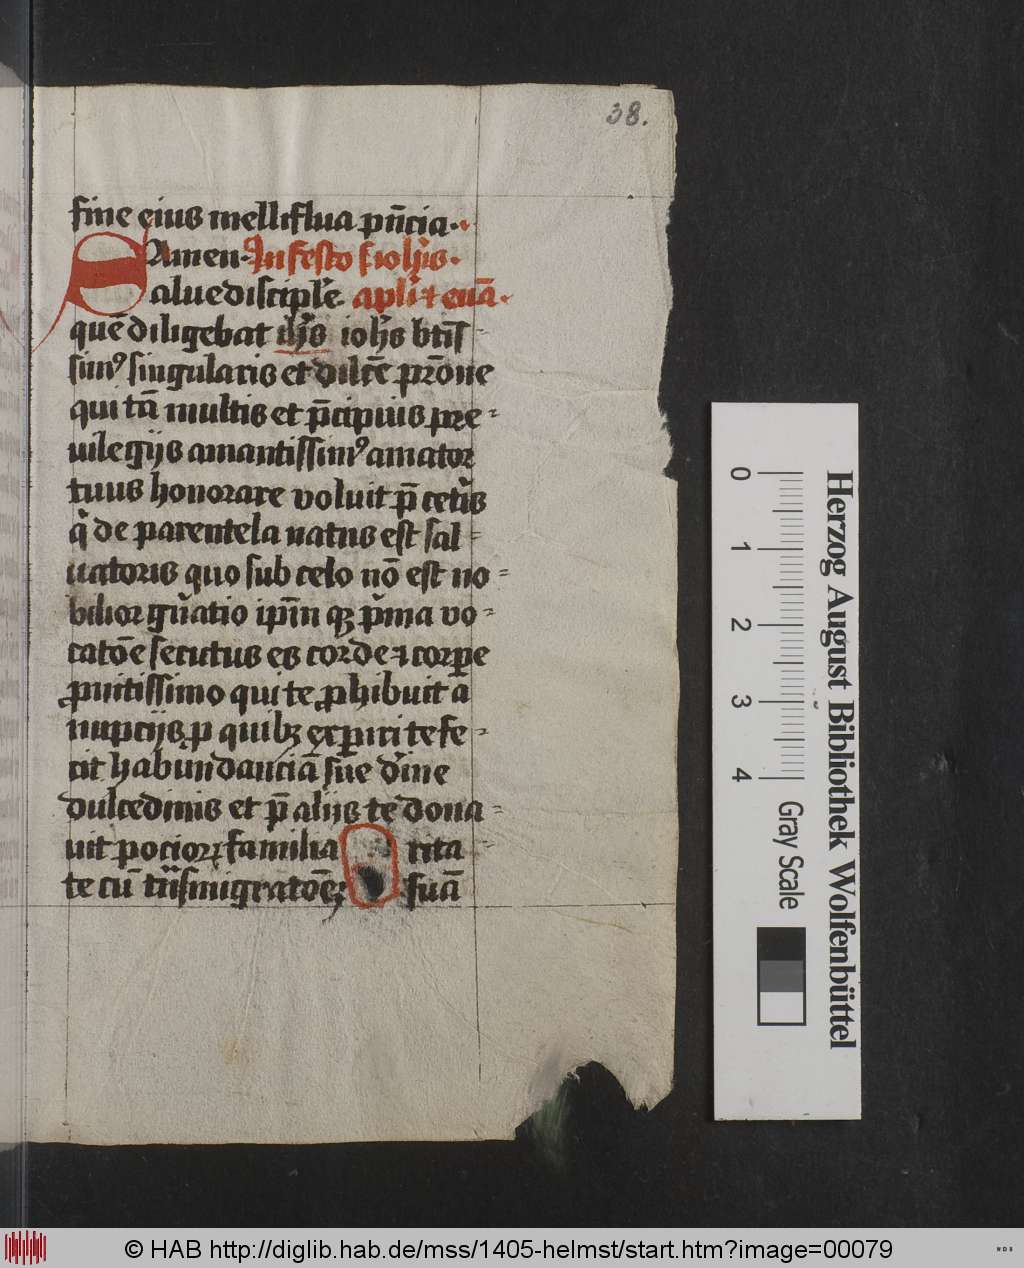 38.
fine eius melliflua pn̄cia·
Amen· In festo s iohis·
Salue discipl'e apl'i ⁊ euā·
quē diligebat ihs iohs btīs-
simꝰ singularis et dilcē prōne
qui tā multis et p̄cipuis pre-
uilegijs amantissimꝰ amator
tuus honorare voluit p̄ ceteris
qi de parentela natus est sal-
uatoris quo sub celo nō est no-
bilior gn̄atio ip̄m qꝫ pⁱma vo-
catōe secutus es corde ⁊ corꝑe
ꝓnitissimo qui te ꝓhibuit ā
nuptijs ꝑ quibꝫ exꝑiri te fe-
cit habūndanciā sue dīne
dulcedinis et p̄ alijs te dona-
uit pocioꝝ familia rita-
te cū trīsmigratōeꝫ suā
Herzog August Bibliothek Wolfenbüttel
0 1 2 3 4 Gray Scale
© HAB http://diglib.hab.de/mss/1405-helmst/start.htm?image=00079